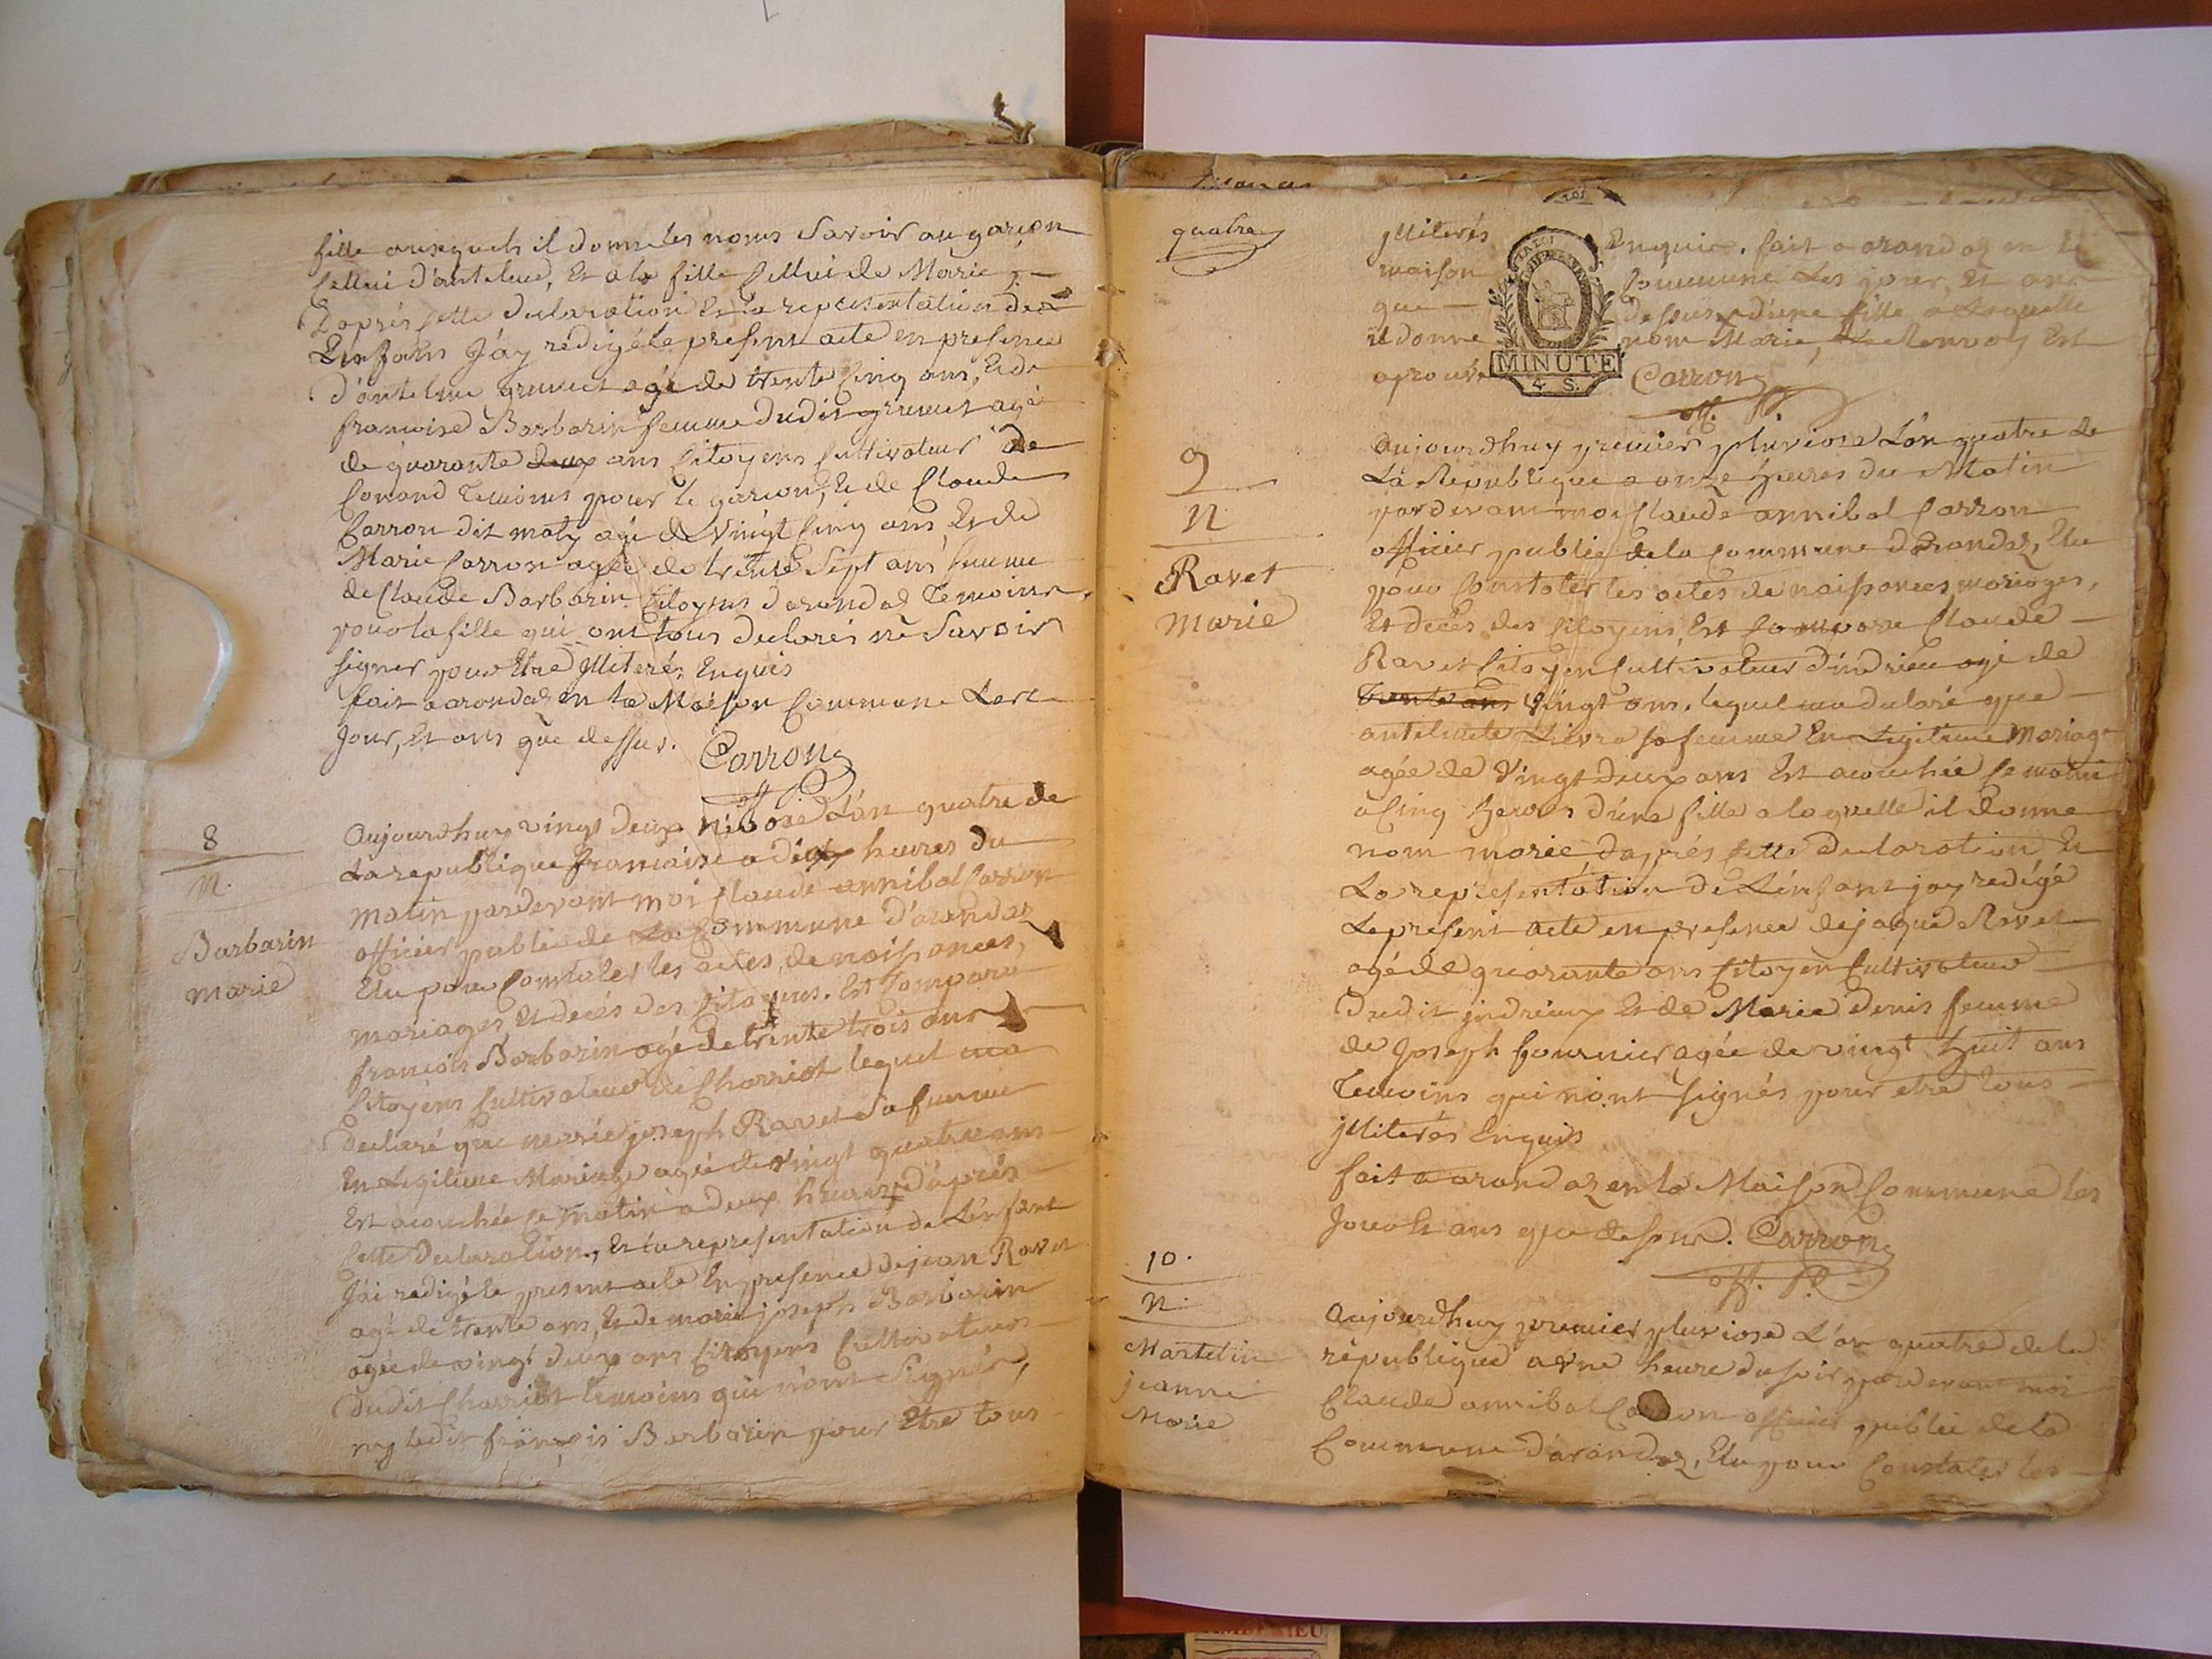 fille auxquels il donne les noms Savoir au garçon
Cellui d'antelme, Et a la fille Cellui de Marie, 
D'après Cette declaration Et la representation des
Enfans J'ay rédigé le present acte en presence
d'antelme grumet agé de trente Cinq ans, Et de
francoise Barbarin femme dudit grumet agé
de quarante deux ans Citoyens Cultivateur de
Conand Temoins pour le garcon, Et de Claude
Carron dit maty agé de Vingt Cinq ans Et de
Marie Carron agée de trente Sept ans femme
de Claude Barbarin Citoyens d'arandas Temoins
pour la fille qui ont tous declarés ne Savoir
signer pour Etre illiterés Enquis
fait a arandas en la Maison Commune Les
Jour, Et ans que dessus. Carron
off. P.
8
N.
Barbarin
marie
Aujourdhuy vingt deux Nivose L'an quatre de
La republique francaise a dix heures du
matin pardevant moi Claude annibal Carron
officier public de La Commune d'arandas
Elu pour Constater les actes de naissances,
mariages Et decés des Citoyens. Est Comparu
francois Barbarin agé de trente trois ans
Citoyens Cultivateur de Charriot lequel ma
declaré que marie joseph Ravet Sa femme
En Legitime Mariage agée de vingt quatre ans
Est acouchée ce matin a deux heures d'après
Cette Declaration, Et la representation de L'enfant
J'ai redigé le present acte En presence de jean Ravet
agé de trente ans, Et de marie joseph Barbarin
agée de vingt deux ans Citoyens Cultivateurs
Dudit Charriot temoins qui n'ont Signés,
ny ledit françois Barbarin pour Etre tous
quatre
jlliterés Enquis. fait a arandas en la
maison Commune Les jour, Et an
que dessus d'une fille a Laquelle
il donne nom Marie, Le Renvoy Est
aprouvé Carron
off. P.
LA LOI
MINUTE
4. S.
9
N
Ravet
Marie
Aujourdhuy premier pluviose L'an quatre de
La Republique a onze heures du Matin
pardevant moi Claude annibal Carron
officier public de la Commune d'arandas, Elu
pour Constater les actes de naissances, mariages,
Et decés des Citoyens, Est Comparu Claude
Ravet Citoyen Cultivateur d'indrieu agé de
trente ans Vingt ans. lequel ma declaré que
antelmete Lievra sa femme En Legitime Mariage
agée de Vingt deux ans Est acouchée ce matin
a Cinq heures d'une fille a laquelle il donne
nom marie, d'après Cette Declaration Et
La representation de L'enfant jay redigé
Le present acte en presence de jaque Ravet
agé de quarante ans Citoyen Cultivateur
Dudit jndrieux Et de Marie Denis femme
de Joseph fournier agée de vingt huit ans
Temoins qui n'ont signés pour etre tous
jlliterés Enquis
fait a arandas en la Maison Commune les
Jour Et ans que dessus. Carron
off. P.
10.
N.
Martelin
jeanne
Marie
Aujourdhuy premier pluviose L'an quatre de la
republique a une heure du soir pardevant moi
Claude annibal Carron officier public de la
Commune d'arandas, Elu pour Constater les